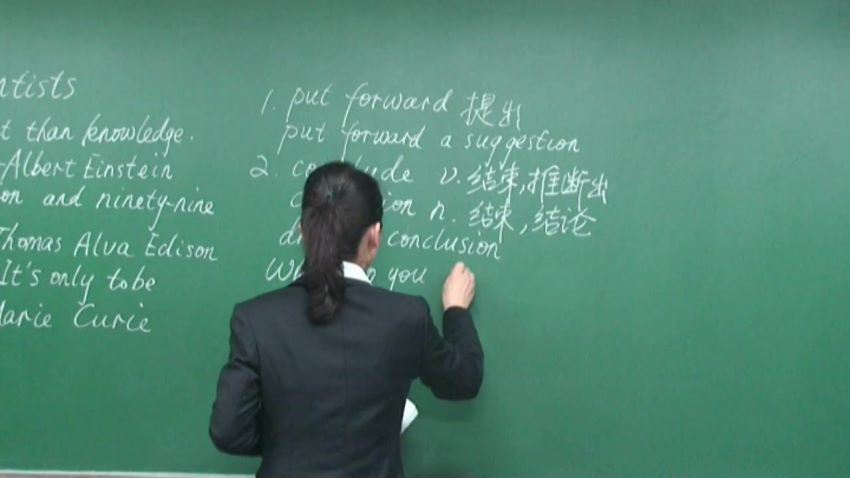 ntists
t than knowledge.
-Albert Einstein
on and ninety-nine
Thomas Alva Edison
It's only tobe
Marie Curie
1. put forward 提出
put forward a suggestion
2. conclude v. 结束,推断出
n. 结束,结论
conclusion
you